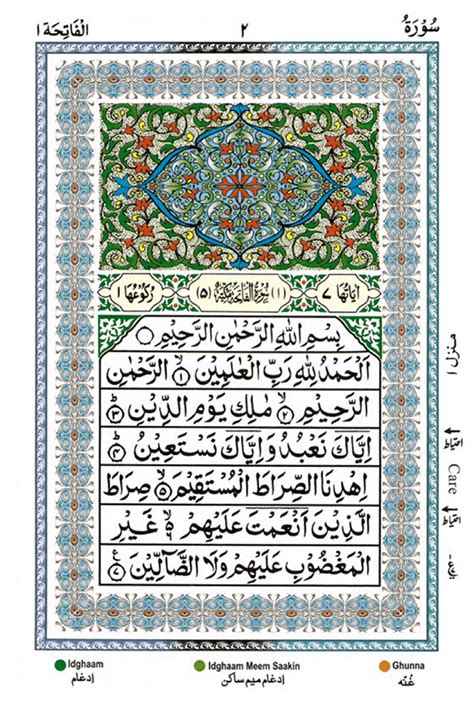 سُوْرَةُ ٢ اَلْفَاتِحَة ١
اٰيَاتُهَا ٧ (١) سُوْرَةُ الْفَاتِحَةِ مَكِّيَّةٌ (٥) رُكُوْعُهَا ١
بِسْمِ اللّٰهِ الرَّحْمٰنِ الرَّحِيْمِ
اَلْحَمْدُ لِلّٰهِ رَبِّ الْعٰلَمِيْنَ ١ۙ الرَّحْمٰنِ
الرَّحِيْمِ ٢ۙ مٰلِكِ يَوْمِ الدِّيْنِ ٣ؕ
اِيَّاكَ نَعْبُدُ وَاِيَّاكَ نَسْتَعِيْنُ ٤ؕ
اِهْدِنَا الصِّرَاطَ الْمُسْتَقِيْمَ ٥ۙ صِرَاطَ
الَّذِيْنَ اَنْعَمْتَ عَلَيْهِمْ ٦ۙ غَيْرِ
الْمَغْضُوْبِ عَلَيْهِمْ وَلَا الضَّآلِّيْنَ ٧ع
منزل ١
احتياط
Care
احتياط
Idghaam
Idghaam Meem Saakin
Ghunna
إدغام
إدغام ميم ساكن
غُنّه